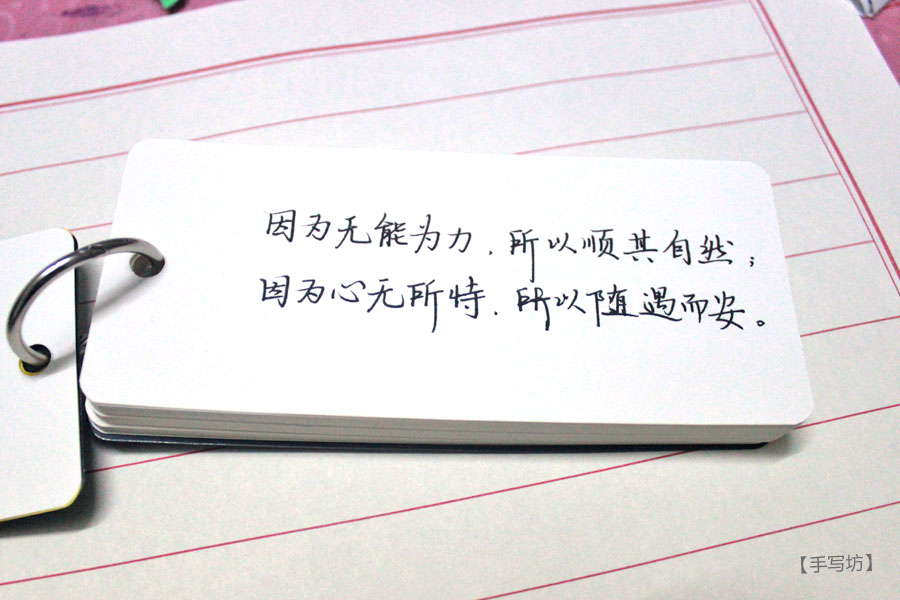 因为无能为力，所以顺其自然；
因为心无所恃，所以随遇而安。
【手写坊】